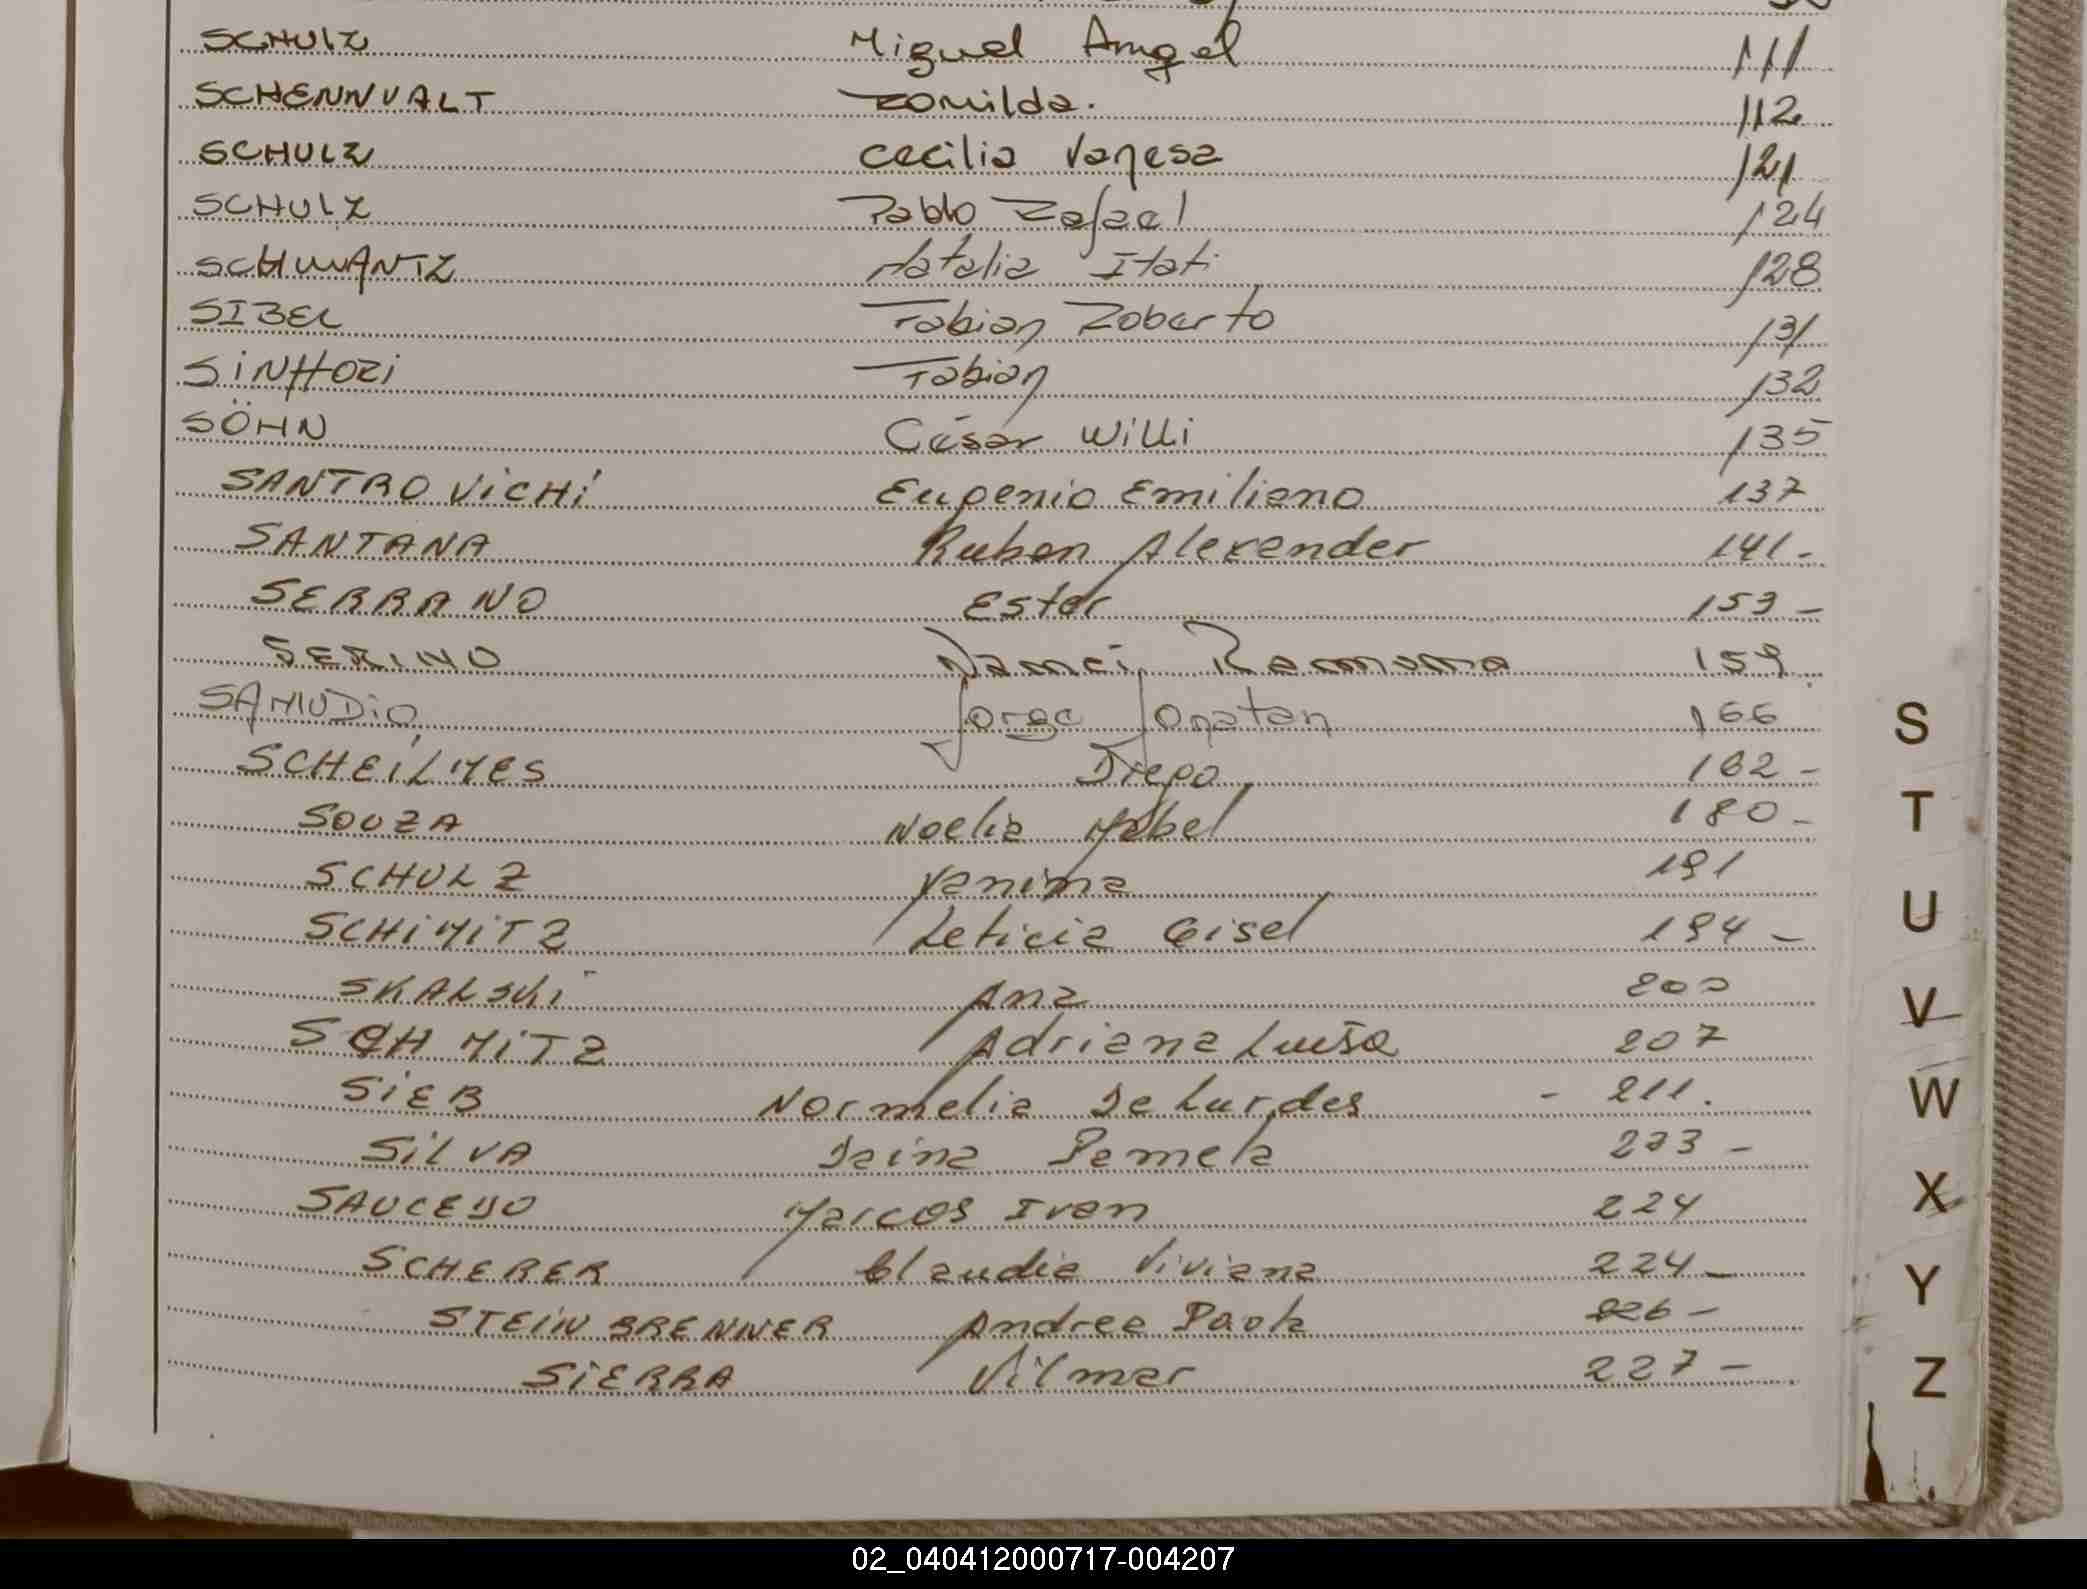 SCHULZ Miguel Angel 111
SCHENNVALT Romilda. 112
SCHULZ Cecilia Vanesa 121
SCHULZ Pablo Rafael 124
SCHWANTZ Natalia Itati 128
SIBEL Fabian Roberto 131
SiNHORi Fabian 132
SÖHN César Willi 135
SANTROViCHi Eugenio Emiliano 137
SANTANA Ruben Alexander 141-
SERRANO Ester 153-
SERINO Ramona 159
SAMUDiO Jorge Jonatan 166
SCHEiLMES Diego 162-
SOUZA Noelia Mabel 180-
SCHULZ Yanina 191
SCHiMiTZ Leticia Gisel 194-
SKALSKi Ana 200
SCHMiTZ Adriana Luisa 207
SiEB Normelia De Lurdes - 211.
SiLVA Daina Pamela
SAUCEDO Marcos Ivan 224
SCHERER Claudia Viviana 224-
STEiNBRENNER Andrea Paola 226-
SiERRA Vilmar 227-
S
T
U
V
W
X
Y
Z
02_040412000717-004207